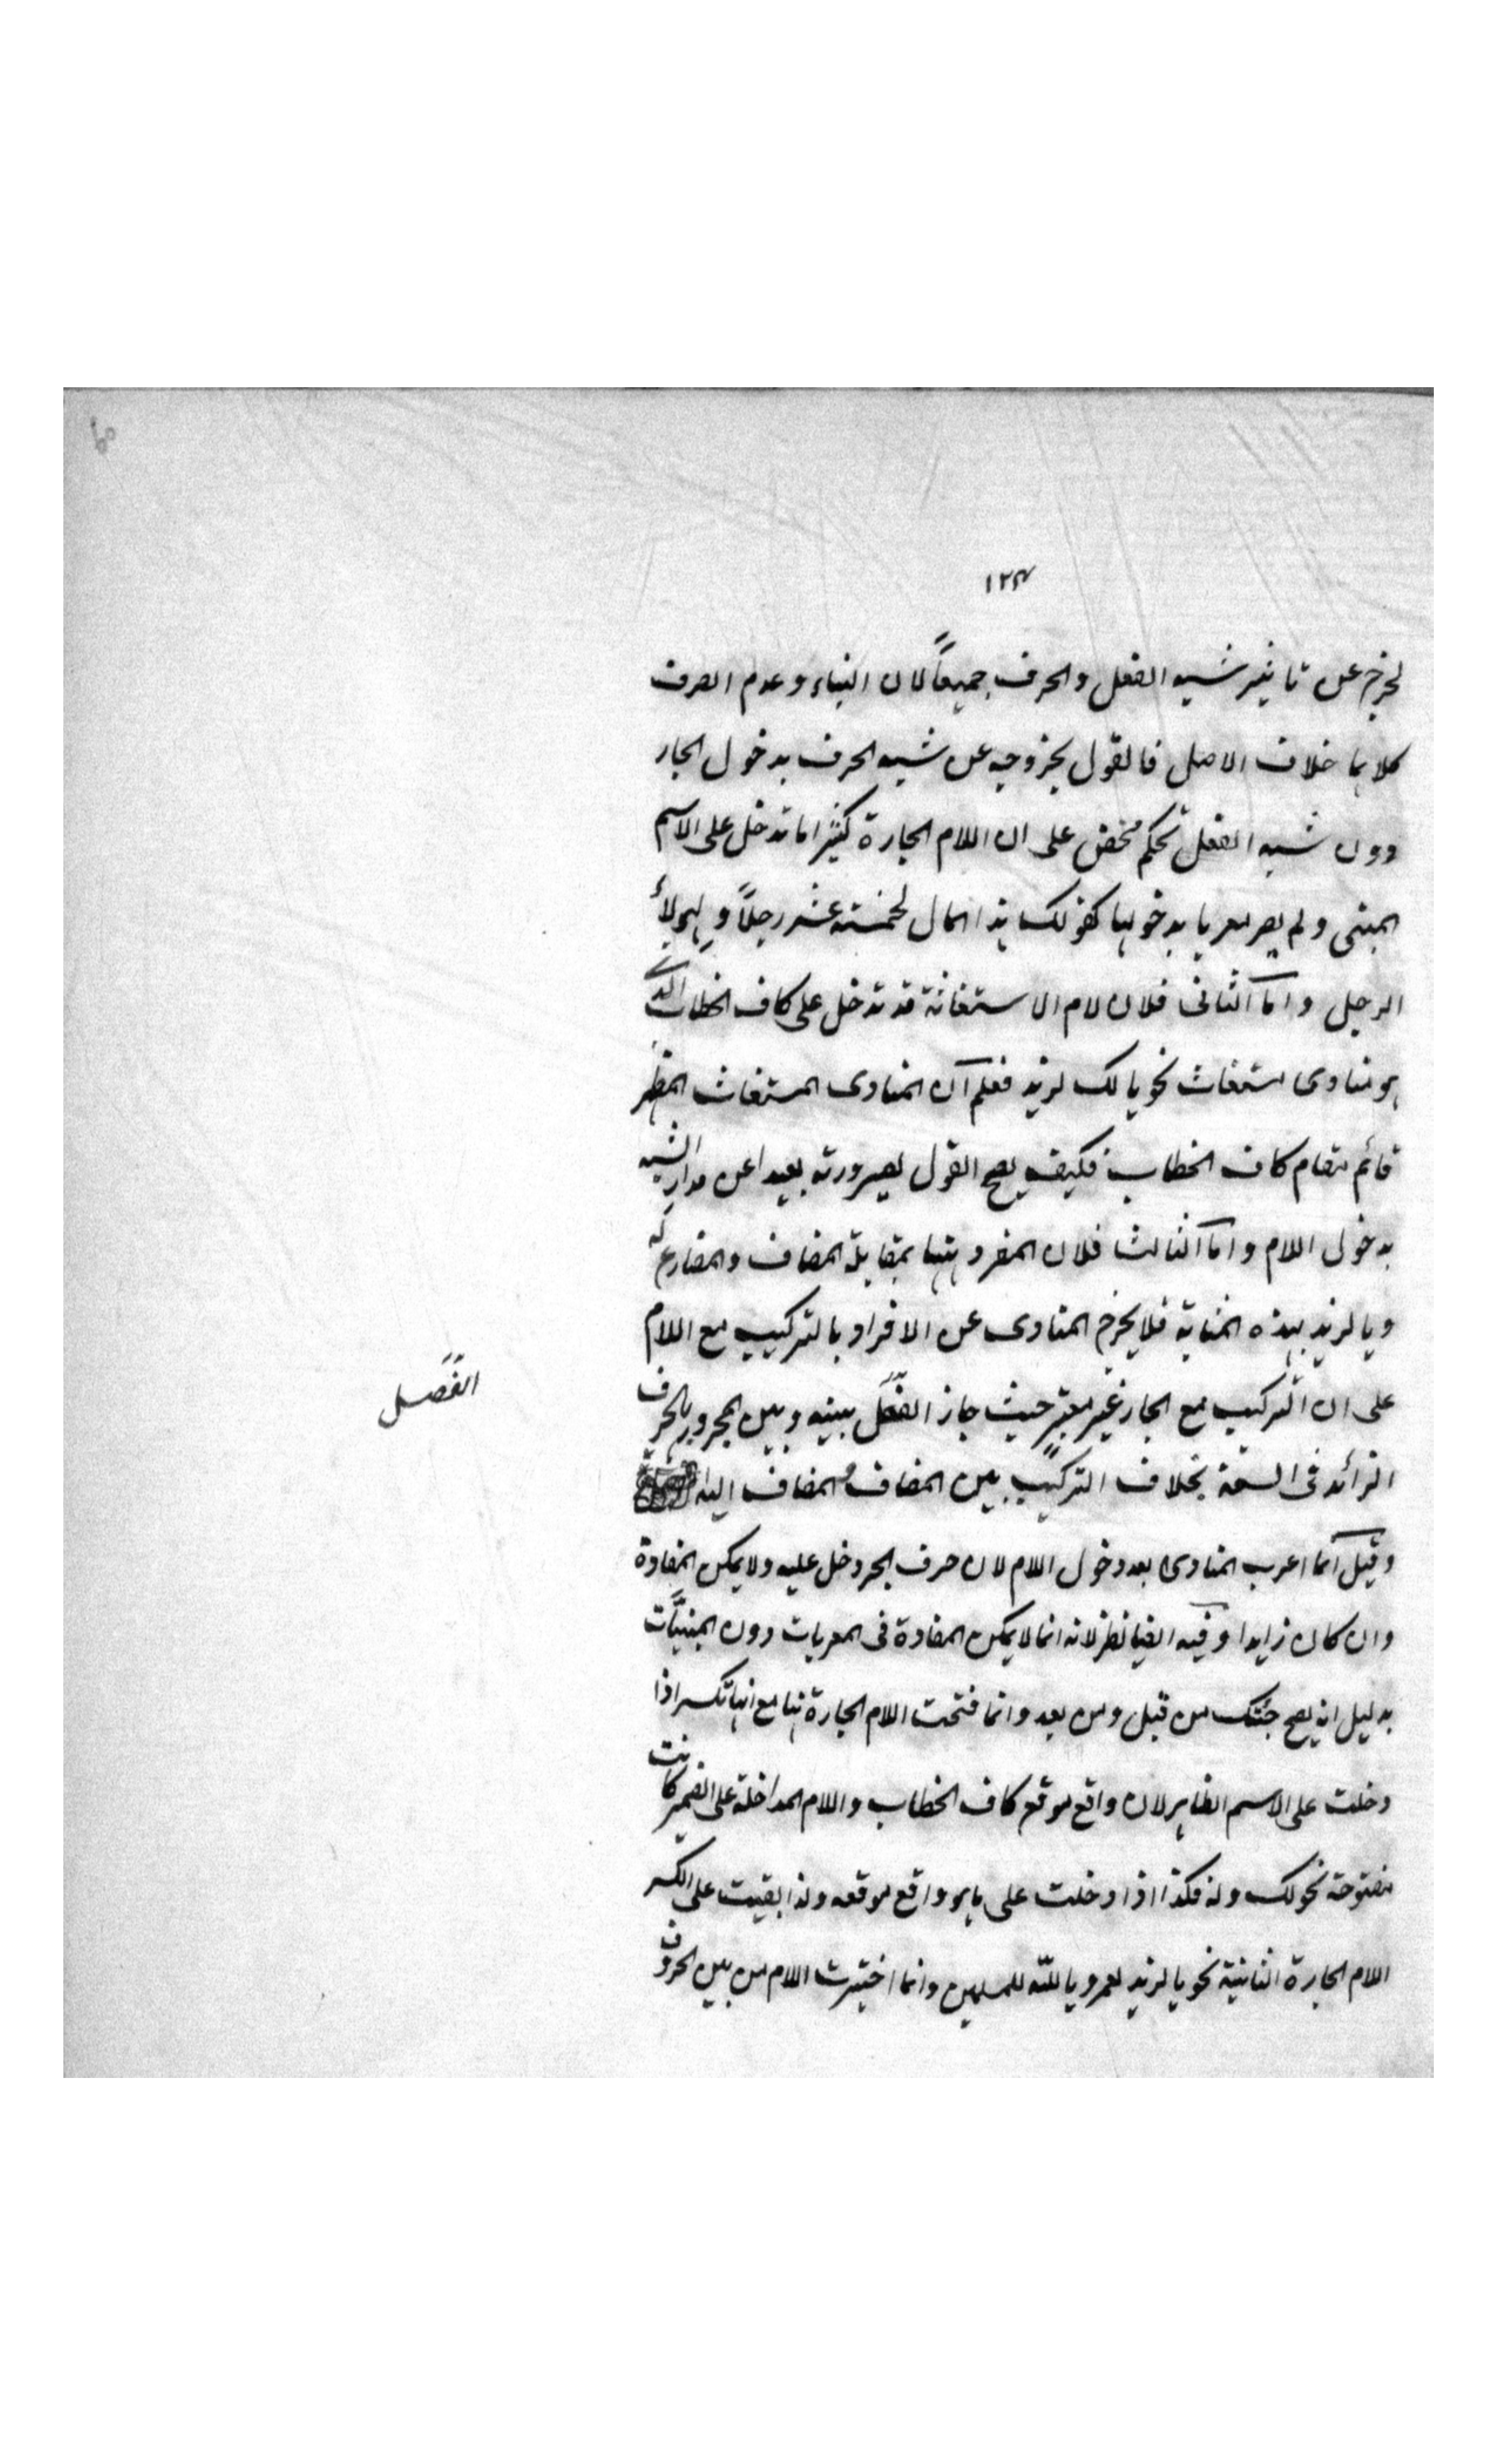 ١٢٤
لخرج عن تاثير شبه الفعل والحرف جميعاً لان البناء وعدم الصرف
كلاهما خلاف الاصل فالقول بخروجه عن شبه الحرف بدخول الجار
دون شبه الفعل تحكم محض على ان اللام الجارة كثيرا ما تدخل على الاسم
المبنى ولم يصر معربا بدخولها كقولك هذا المال لخمسة عشر رجلاً ولهولاء
الرجل واما الثانى فلان لام الاستغاثة قد تدخل على كاف الخطاب الذى
هو منادى مستغاث نحو يا لك لزيد فعلم ان المنادى المستغاث المظهر
قائم مقام كاف الخطاب فكيف يصح القول بصيرورته بعيدا عن مدار الشبه
بدخول اللام واما الثالث فلان المفرد ههنا بمقابلة المضاف والمضارع له
ويا لزيد بهذه المثابة فلا يخرج المنادى عن الافراد بالتركيب مع اللام
على ان التركيب مع الجار غير معتبر حيث جاز الفعل بينه وبين المجرور بالحرف
الفصل
الزائد فى السعة بخلاف التركيب بين المضاف والمضاف اليه
وقيل انما اعرب المنادى بعد دخول اللام لان حرف الجر دخل عليه ولا يمكن الغاءه
وان كان زايدا وفيه ايضا نظر لانه انما لا يمكن الغاءه فى المعربات دون المبنيات
بدليل انه يصح جئتك من قبل ومن بعد وانما فتحت اللام الجارة ههنا مع انها تكسر اذا
دخلت على الاسم الظاهر لانه واقع موقع كاف الخطاب واللام الداخلة على الضمير كانت
مفتوحة نحو لك وله فكذا اذا دخلت على ما هو واقع موقعه ولذا بقيت على الكسر
اللام الجارة الثانية نحو يا لزيد لعمرو يا لله للمسلمين وانما اختيرت اللام من بين الحروف